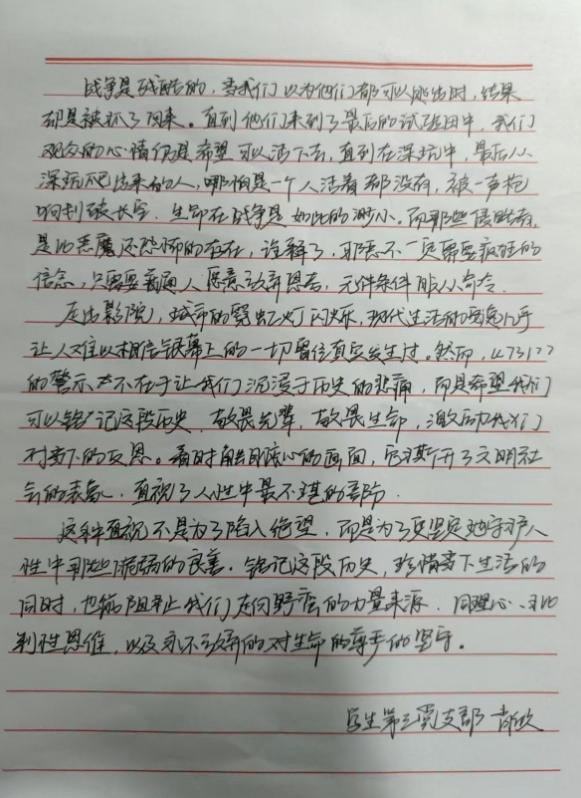 战争是残酷的，当我们以为他们都可以逃出时，结果
却是被抓了回来。直到他们来到了最后的试验田中，我们
观众的心情仍是希望可以活下去，直到在深坑中，最后从
深坑爬出来的人，哪怕是一个人活着都没有，被一声枪
响划破长空，生命在战争是如此的渺小。而那些侵略者，
是比恶魔还恐怖的存在，诠释了，邪恶不一定需要疯狂的
信念，只需要普通人愿意放弃思考，无条件服从命令.
走出影院，城市的霓虹灯闪烁，现代生活的喧嚣几乎
让人难以相信银幕上的一切曾信真实发生过。然而，《731》
的警示不在于让我们沉浸于历史的悲痛，而是希望我们
可以铭记这段历史，敬畏先辈，敬畏生命，激励我们
对当下的反思。看时触目惊心的画面，它撕开了文明社
会的表象，直视了人性中最不堪的部分.
这种直视不是为了陷入绝望，而是为了更坚定地守护人
性中那些脆弱的良善. 铭记这段历史，珍惜当下生活的
同时，也能阻止我们走向野蛮的力量来源. 同理心、批
判性思维，以及永不放弃的对生命的尊严的坚守。
学生第三党支部 肖欣